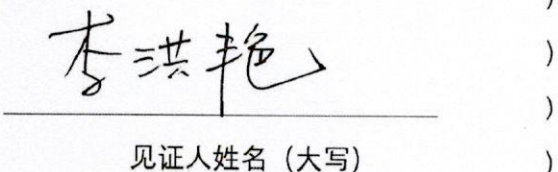 李洪艳
)
)
)
见证人姓名（大写）
)